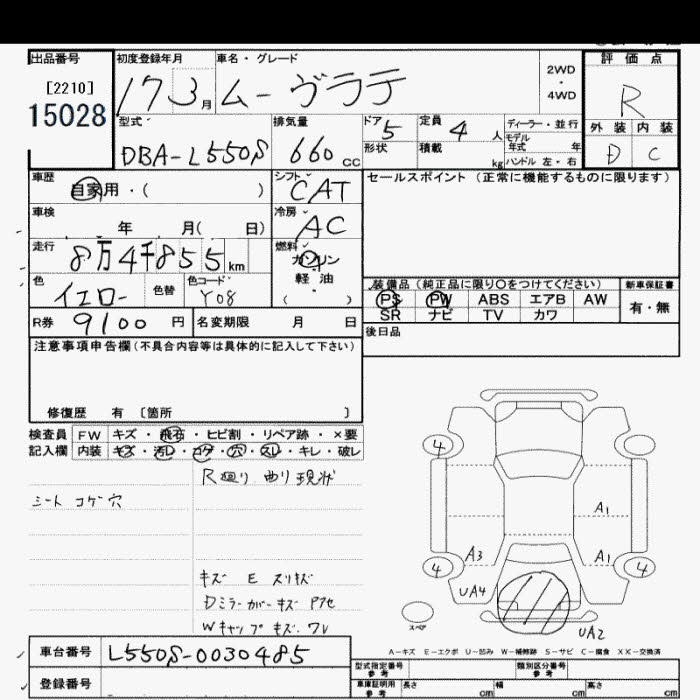 出品番号
[2210]
15028
初度登録年月
17 3月
車名・グレード
ムーヴラテ
2WD
・
4WD
評価点
R
外装 内装
D C
型式
DBA-L550S
排気量
660cc
ドア
5
形状
定員
4人
積載
kg
ディーラー・並行
モデル
年式 年
ハンドル 左・右
車歴
自家用・( )
シフト
CAT
セールスポイント(正常に機能するものに限ります)
車検
年 月( 日)
冷房
AC
走行
8万4千855km
燃料
ガソリン
軽油
( )
色
イエロー
色替
色コード
Y08
装備品(純正品に限り〇をつけてください)
新車保証書
PS PW ABS エアB AW
有・無
SR ナビ TV カワ
R券 9100円
名変期限 月 日
後日品
注意事項申告欄(不具合内容等は具体的に記入して下さい)
修復歴 有 〔箇所 〕
検査員
記入欄
FW キズ・飛石・ヒビ割・リペア跡・×要
内装 キズ・汚レ・コゲ・穴・スレ・キレ・破レ
R廻り 曲り 現状
シート コゲ穴
キズ E スリキズ
Dミラーカバーキズ
Wキャップキズ
4
A1
A3
A1
4
4
UA4
UA2
スペア
A-キズ E-エクボ U-凹み W-補修跡 S-サビ C-腐食 XX-交換済
車台番号 L550S-0030485
登録番号
型式指定番号
参考
類別区分番号
参考
車庫証明用
参考
長さ cm 幅 cm 高さ cm